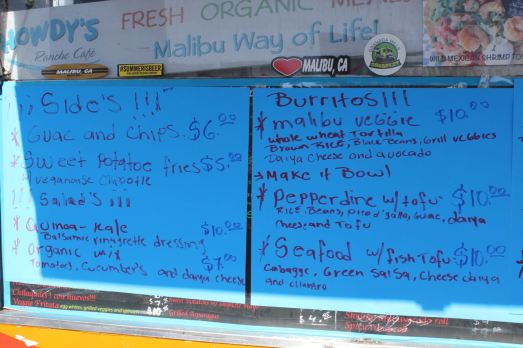 HOWDY'S
Ranche Café
FRESH ORGANIC MEALS
Malibu Way of Life!
MALIBU, CA
#SUMMERISBEER
MALIBU, CA
WILD MEXICAN SHRIMP TO
¡¡¡ Side's !!!
* Guac and Chips. $6.00
* Sweet Potatoe fries $5.00
veganaise Chipotle
¡¡¡ Salad's ¡¡¡
* Quinoa-Kale $10.00
Balsamic vinagrette dressing
* Organic Mix $7.00
Tomatos, Cucumber's and daiya cheese
Burritos!!!
* malibu veggie $10.00
whole wheat Tortilla
Brown Rice, Black Beans, Grill veggies
Daiya Cheese and avocado
→ Make it Bowl
* Pepperdine w/tofu $10.00
Rice, Beans, Pico d' gallo, Guac, daiya
cheese and Tofu
* Seafood w/fish Tofu $10.00
Cabagge, Green Salsa, Cheese daiya
and cilantro
Chilaquiles! con huevos!!!
Veggie Fritata egg whites, grilled veggies and
Grilled Asparagus